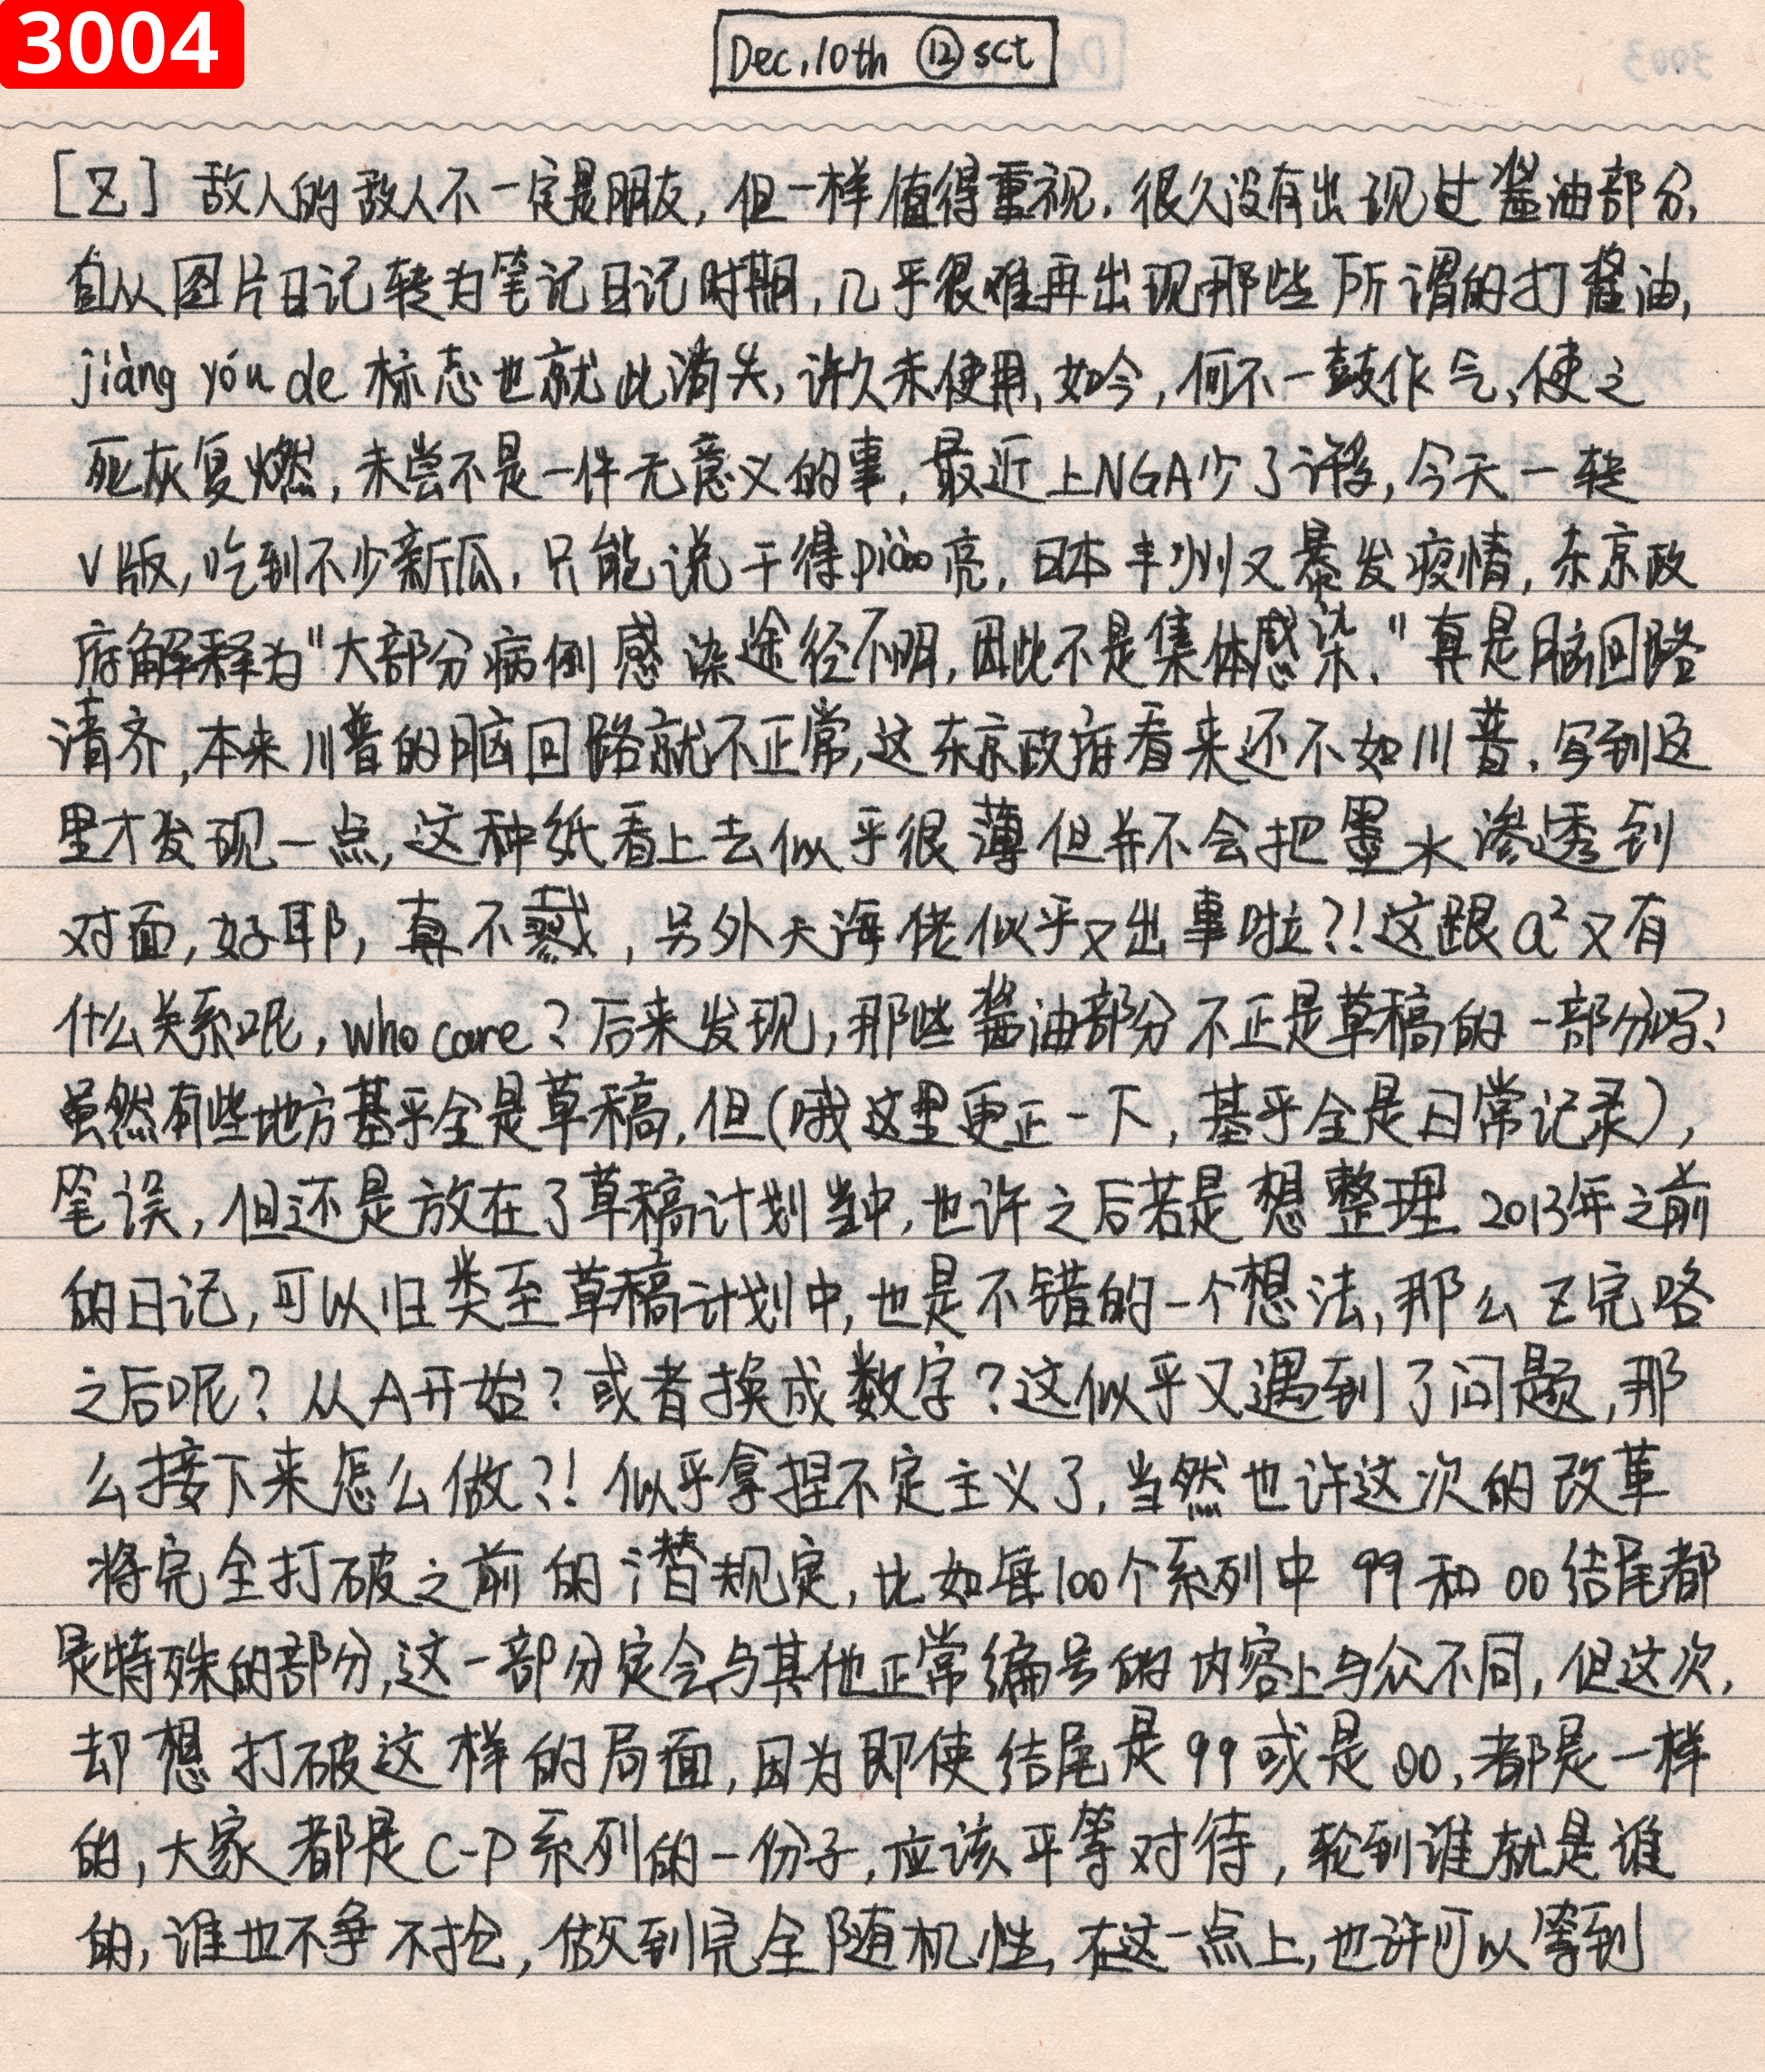 3004
Dec.10th ⑫ sct
[Z] 敌人的敌人不一定是朋友, 但一样值得重视. 很久没有出现过酱油部分,
自从图片日记转为笔记日记时期, 几乎很难再出现那些所谓的打酱油,
jiàng yóu de 标志也就此消失, 许久未使用, 如今, 何不一鼓作气、使之
死灰复燃, 未尝不是一件无意义的事. 最近上NGA少了许多, 今天一转
V版, 吃到不少新瓜. 只能说干得piào亮. 日本丰州又暴发疫情, 东京政
府解释为"大部分病例感染途径不明, 因此不是集体感染." 真是脑回路
清齐, 本来川普的脑回路就不正常, 这东京政府看来还不如川普. 写到这
里才发现一点, 这种纸看上去似乎很薄但并不会把墨水渗透到
对面, 好耶, 真不戳, 另外大海佬似乎又出事啦?! 这跟a²又有
什么关系呢, who care? 后来发现, 那些酱油部分不正是草稿的一部分吗?
虽然有些地方基乎全是草稿, 但(哦这里更正一下, 基乎全是日常记录),
笔误, 但还是放在了草稿计划当中, 也许之后若是想整理2013年之前
的日记, 可以归类至草稿计划中, 也是不错的一个想法, 那么Z完咯
之后呢? 从A开始? 或者换成数字? 这似乎又遇到了问题, 那
么接下来怎么做?! 似乎拿捏不定主义了, 当然也许这次的改革
将完全打破之前的潜规定, 比如每100个系列中 99和00结尾都
是特殊的部分, 这一部分定会与其他正常编号的内容上与众不同, 但这次,
却想打破这样的局面, 因为即使结尾是99或是00, 都是一样
的, 大家都是C-P系列的一份子, 应该平等对待, 轮到谁就是谁
的, 谁也不争不抢, 做到完全随机性, 在这一点上, 也许可以等到